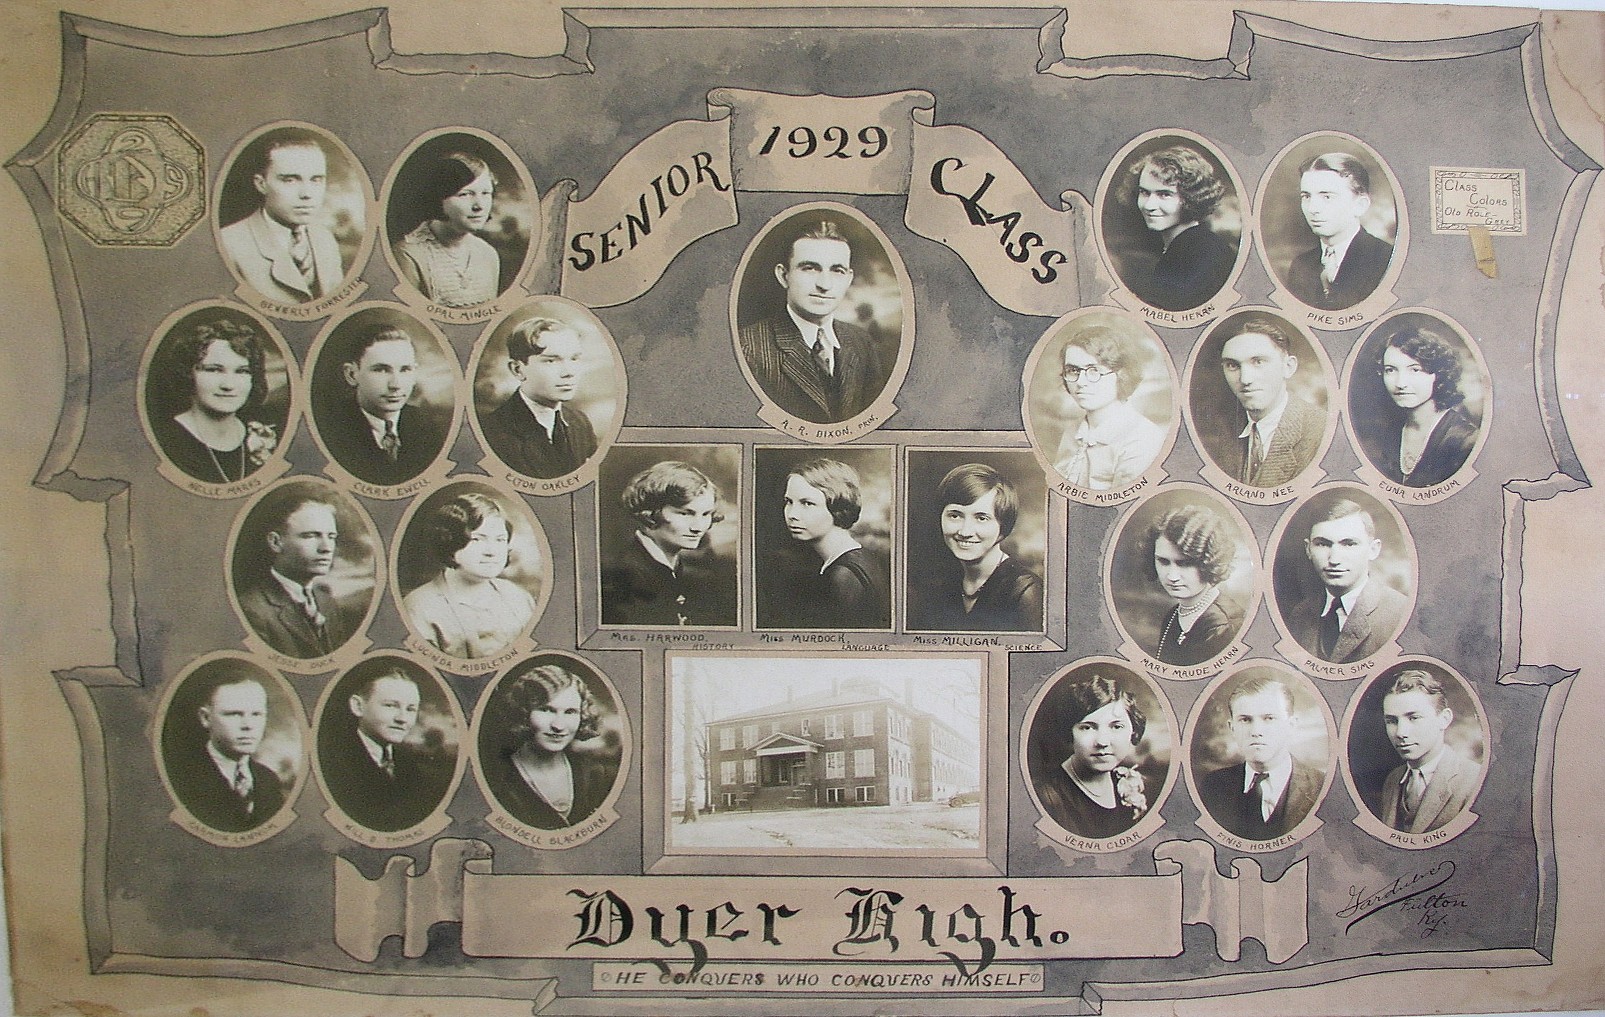 1929
SENIOR CLASS
DHS
29
CLASS
COLORS
OLD ROSE-
GREY
BEVERLY FORRESTER
OPAL MINGLE
MABEL HEARN
PIKE SIMS
A. R. DIXON, PRIN.
NELLE MARKS
CLARK EWELL
ELTON OAKLEY
ARBIE MIDDLETON
ARLAND NEE
EUNA LANDRUM
MRS. HARWOOD,
HISTORY
MISS MURDOCK,
LANGUAGE
MISS MILLIGAN,
SCIENCE
JESSE DUCK
LUCINDA MIDDLETON
MARY MAUDE HEARN
PALMER SIMS
WILL D THOMAS
BLONDELL BLACKBURN
VERNA CLOAR
FINIS HORNER
PAUL KING
Dyer High.
HE CONQUERS WHO CONQUERS HIMSELF
Fulton
Ky.